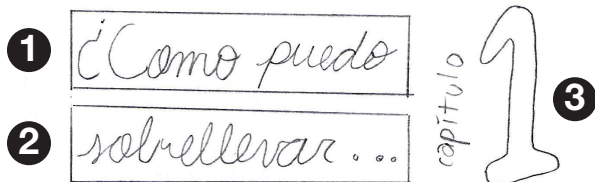 1 ¿Como puedo
2 sobrellevar...
capítulo 1 3